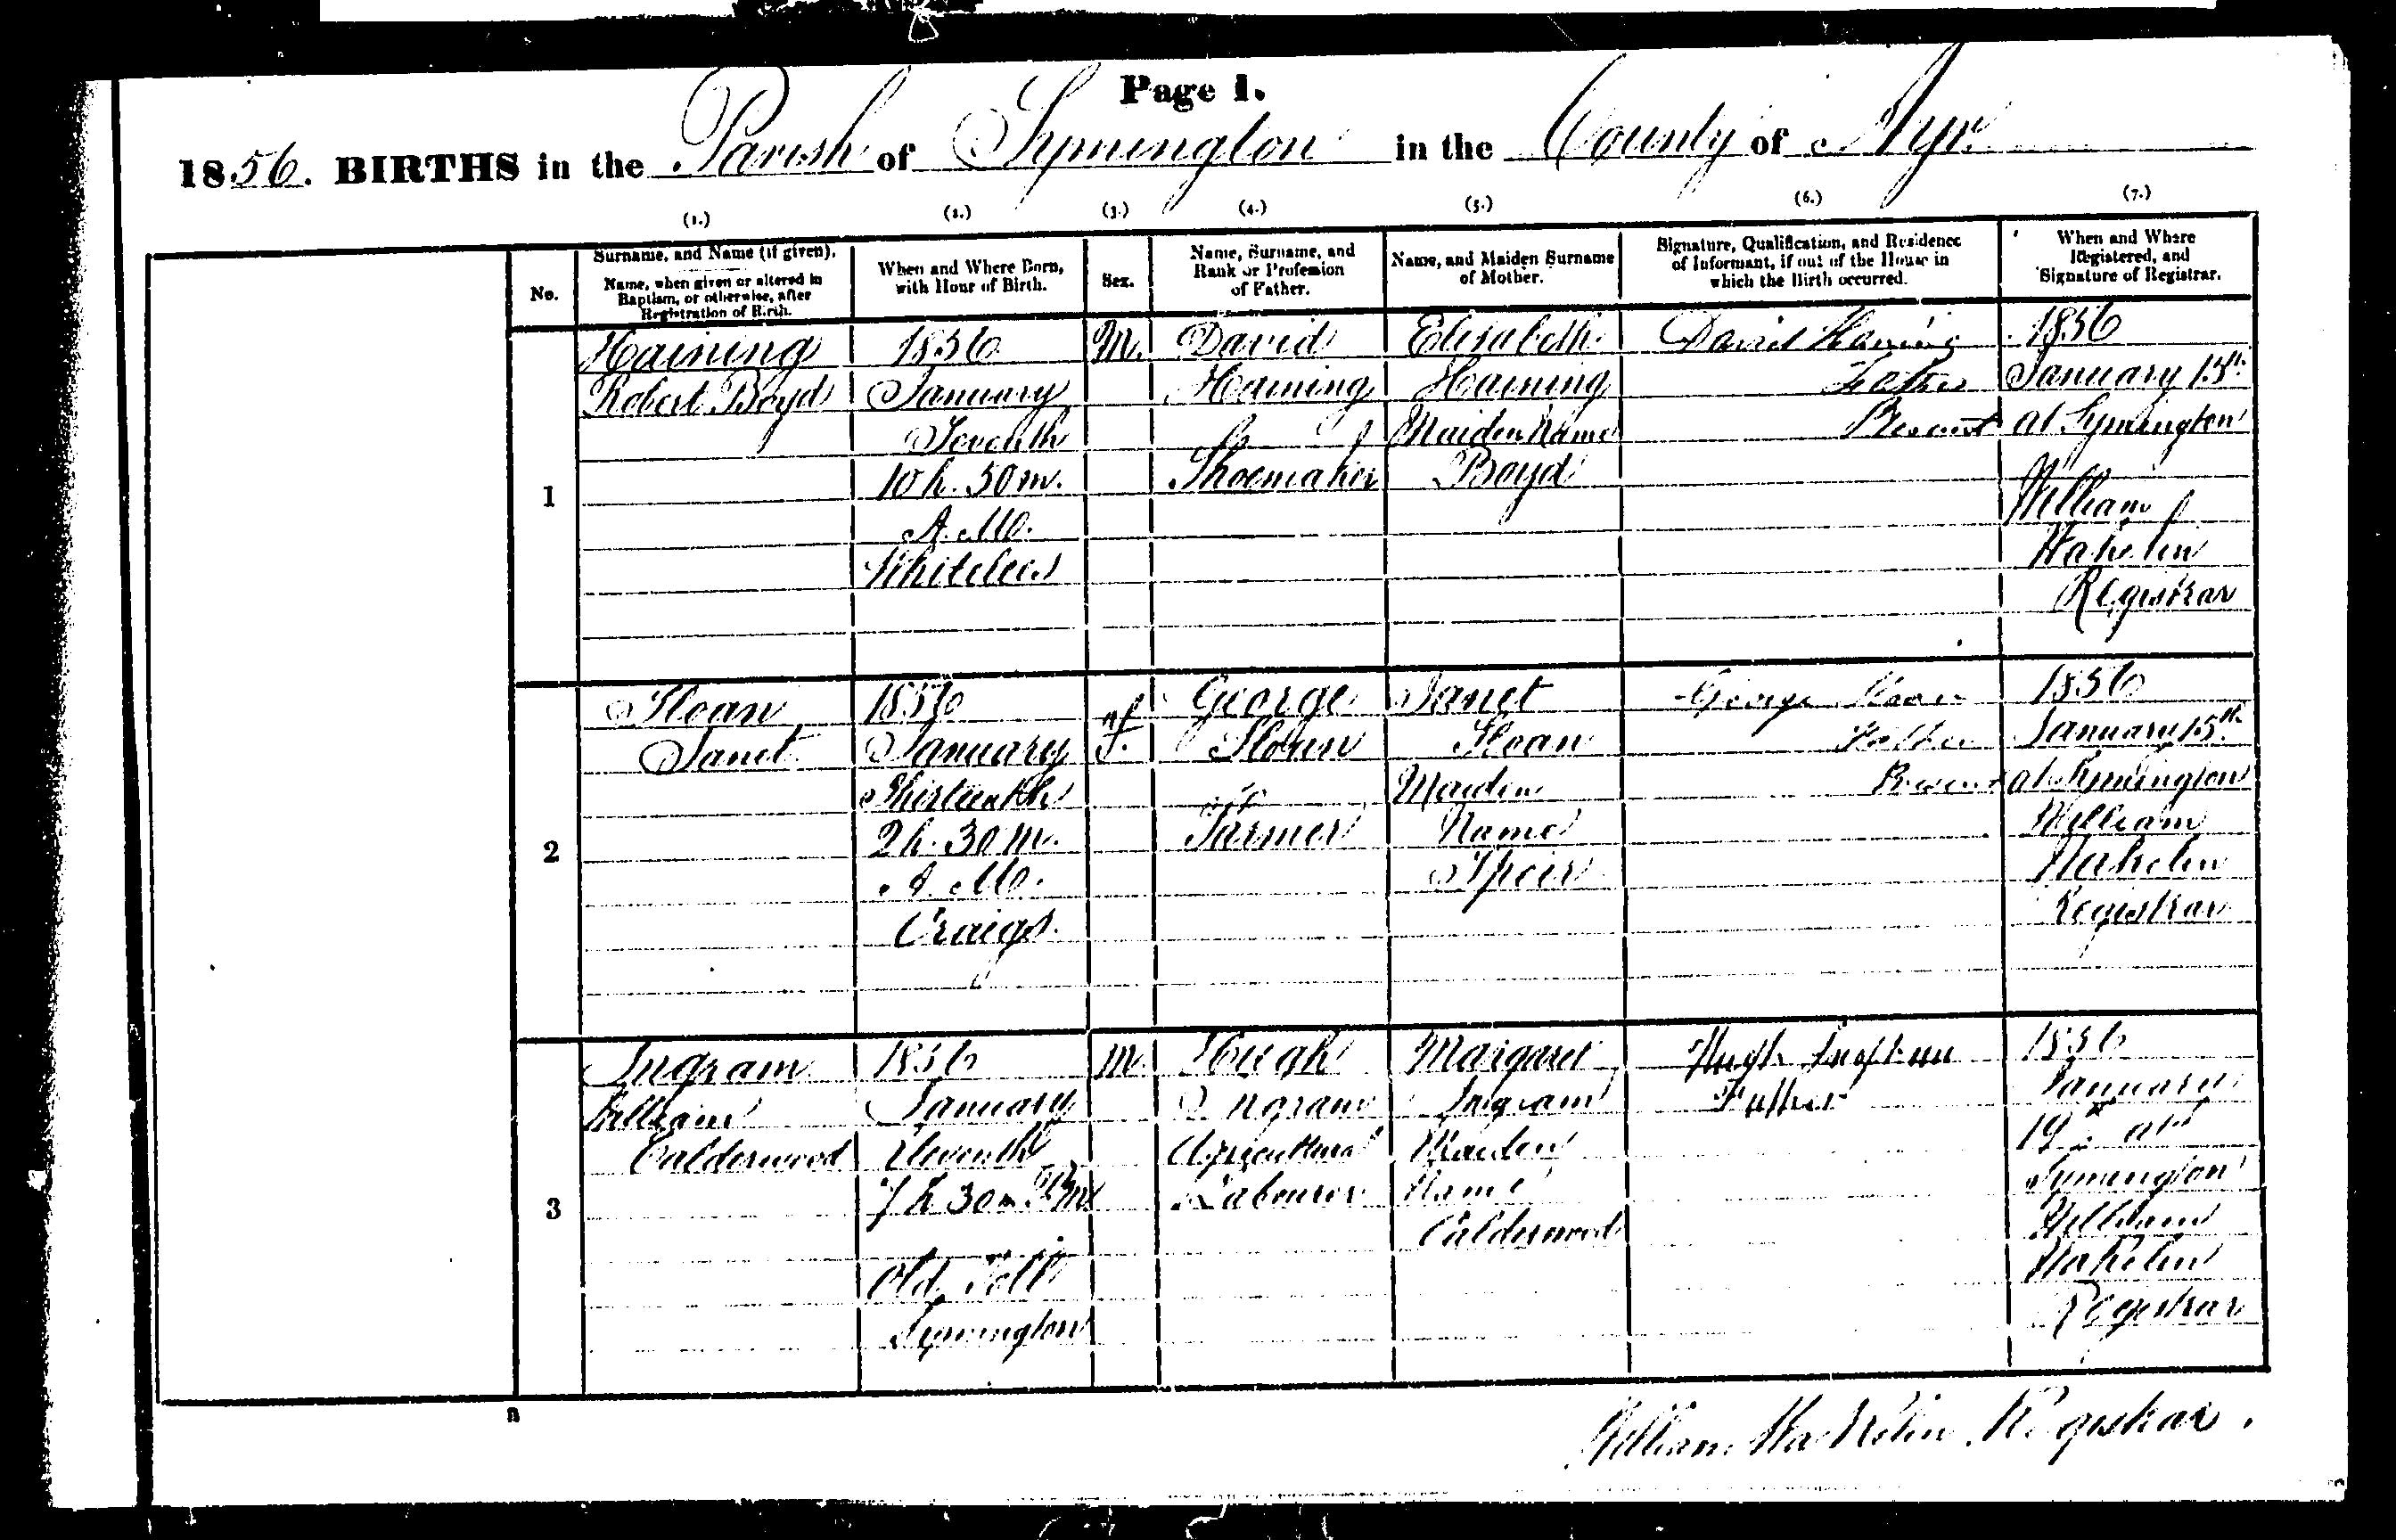 Page 1.
1856. BIRTHS in the Parish of Symington in the County of Ayr.
(1.) (2.) (3.) (4.) (5.) (6.) (7.)
No.
Surname, and Name (if given).
Name, when given or altered in
Baptism, or otherwise, after
Registration of Birth.
When and Where Born,
with Hour of Birth.
Sex.
Name, Surname, and
Rank or Profession
of Father.
Name, and Maiden Surname
of Mother.
Signature, Qualification, and Residence
of Informant, if out of the House in
which the Birth occurred.
When and Where
Registered, and
Signature of Registrar.
1
Haining
Robert Boyd
1856
January
Seventh
10 h. 30 m.
A. M.
Whitelees
M.
David
Haining
Shoemaker
Elisabeth
Haining
Maiden Name
Boyd
David Haining
Father
Present
1856
January 15th
at Symington
William
Wakelin
Registrar
2
Sloan
Janet
1856
January
Thirteenth
2 h. 30 m.
A. M.
Craigs.
F.
George
Sloan
Farmer
Janet
Sloan
Maiden
Name
Speir
George Sloan
Father
Present
1856
January 15th
at Symington
William
Wakelin
Registrar
3
Ingram
William
Calderwood
1856
January
Eleventh
7 h 30 m P.M.
Old Toll
Symington
M.
Hugh
Ingram
Agricultural
Labourer
Margaret
Ingram
Maiden
Name
Calderwood
Hugh Ingram
Father
1856
January
19th at
Symington
William
Wakelin
Registrar
B
William Wakelin Registrar.